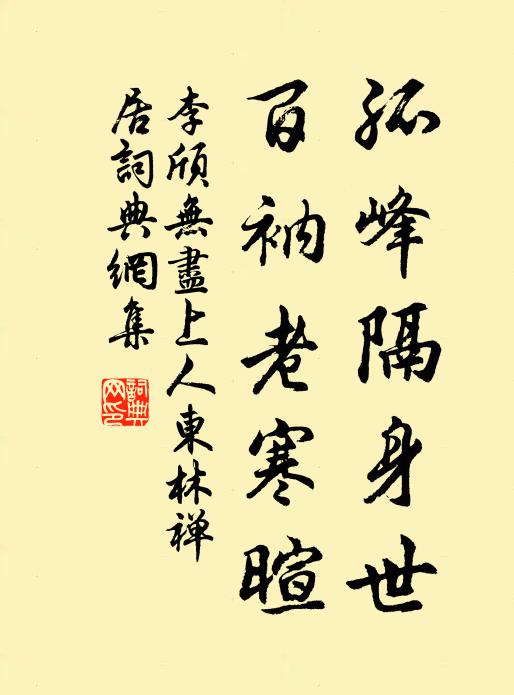 孤峰隔身世
百衲老寒暄
李頎無盡上人東林禅
居詞典網集
詞典
网印